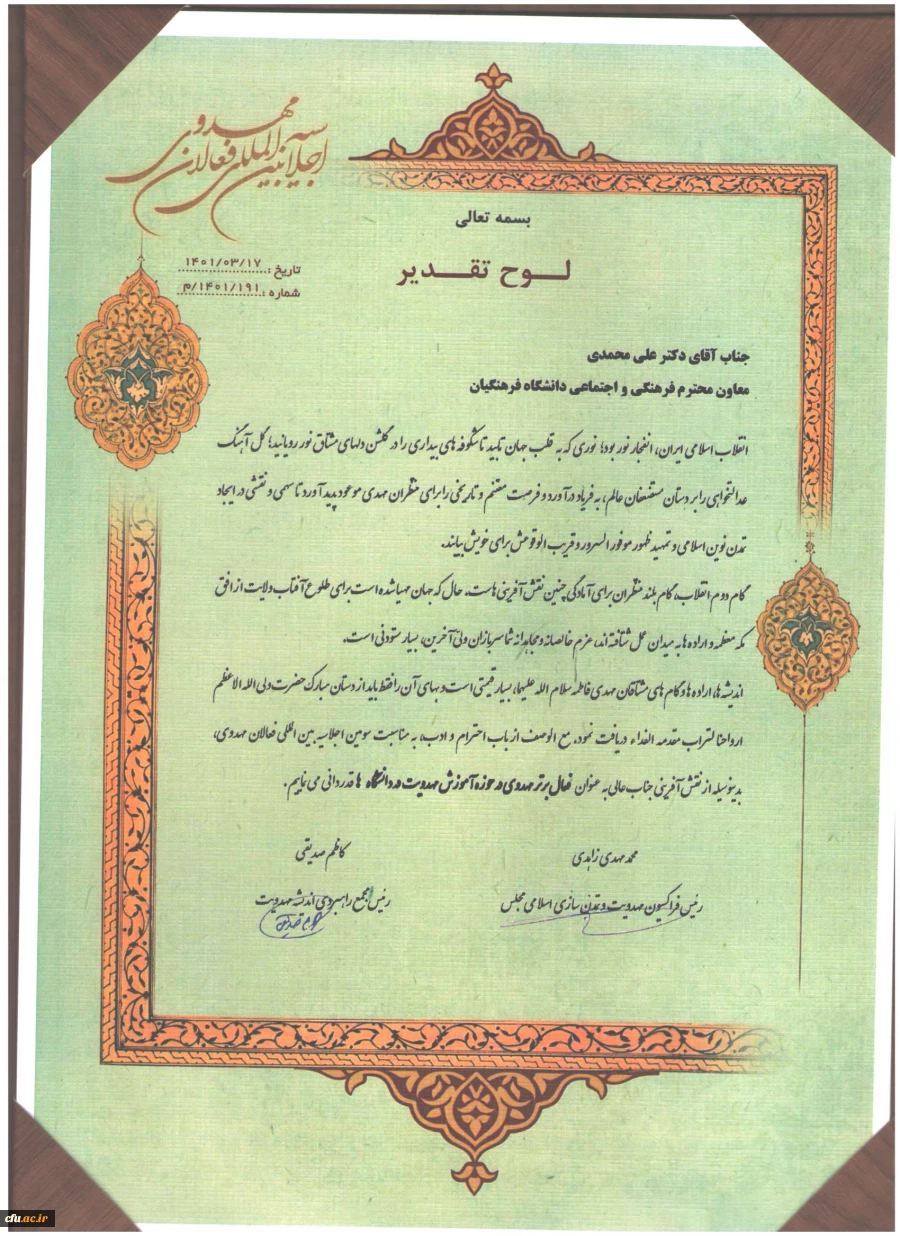 اجلاسیه بین المللی فعالان مهدوی
بسمه تعالی
لوح تقدیر
تاریخ: ۱۴۰۱/۰۳/۱۷
شماره: ۱۴۰۱/۱۹۱/م
جناب آقای دکتر علی محمدی
معاون محترم فرهنگی و اجتماعی دانشگاه فرهنگیان
انقلاب اسلامی ایران، انفجار نور بود؛ نوری که به قلب جهان تابید تا شکوفه های بیداری را در گلشن دلهای مشتاق نور رویانید؛ گل آهنگ
عدالتخواهی را بر دستان مستضعفان عالم، به فریاد درآورد و فرصت مغتنم و تاریخی را برای منتظران مهدی موعود پدید آورد تا سهمی و نقشی در ایجاد
تمدن نوین اسلامی و تمهید ظهور موفور السرور و قریب الوقوعش برای خویش بیابند.
گام دوم انقلاب، گام بلند منتظران برای آمادگی چنین نقش آفرینی هاست. حال که جهان مهیا شده است برای طلوع آفتاب ولایت از افق
مکه معظمه و اراده ها به میدان عمل شتافته اند، عزم خالصانه و مجاهدانه شما سربازان ولی آخرین، بسیار ستودنی است.
اندیشه ها، اراده ها و گام های مشتاقان مهدی فاطمه سلام الله علیها، بسیار قیمتی است و بهای آن را فقط باید از دستان مبارک حضرت ولی الله الاعظم
ارواحنا لتراب مقدمه الفداء دریافت نمود. مع الوصف از باب احترام و ادب، به مناسبت سومین اجلاسیه بین المللی فعالان مهدوی،
بدینوسیله از نقش آفرینی جناب عالی به عنوان فعال برتر مهدوی در حوزه آموزش مهدویت در دانشگاه ها قدردانی می نماییم.
محمد مهدی زاهدی
رئیس فراکسیون مهدویت و تمدن سازی اسلامی مجلس
کاظم صدیقی
رئیس مجمع راهبردی اندیشه مهدویت
cfu.ac.ir